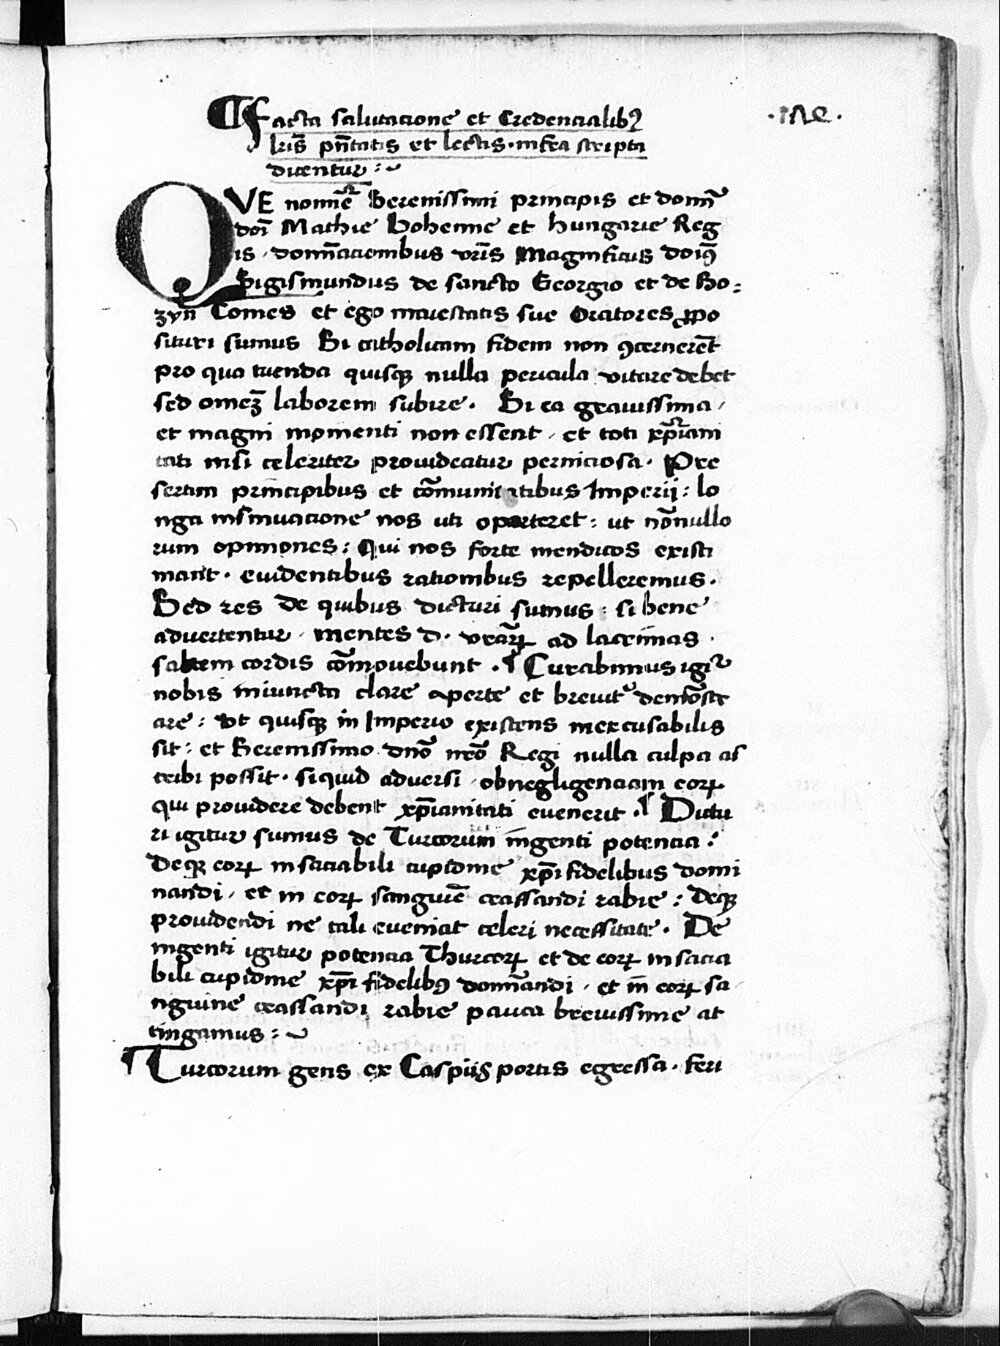 ¶ Facta salutacione et Credencialibꝫ
lr̃is pñtatis et lectis · infra scripta
dicentur :~
QVE nomĩe Serenissimi principis et domĩ
doĩ Mathie Bohemie et Hungarie Reg
is · domĩacionibus vr̃is Magnificus doĩꝰ
Sigismundus de sancto Georgio et de Bo :
zyn Comes et ego maiestatis sue Oratores ꝓpo
situri sumus Si catholicam fidem non ꝯcernerẽt
pro qua tuenda quisqꝫ nulla pericula vitare debet
sed omẽꝫ laborem subire · Si ea grauissima ·
et magni momenti non essent · et toti xp̃iani
tati nisi celeriter prouideatur perniciosa · Pre
sertim principibus et cõmunitatibus Imperij : lo
nga insinuacione nos uti oporteret : ut nõnullo
rum opiniones : Qui nos forte mendicos existi
mant · euidentibus rationibus repelleremus ·
Sed res de quibus dicturi sumus : si bene
aduertentur · mentes d · vraꝝ ad lacrimas ·
saltem cordis cõmouebunt · ¶ Curabimus igit᷑
nobis iniuncta clare aperte et breuit᷑ demõstr
are : Vt quisqꝫ in Imperio existens inexcusabilis
sit : et Serenissimo dño nr̃o Regi nulla culpa as
cribi possit · si quid aduersi · ob negligenciam eoꝝ
qui prouidere debent xp̃ianitati euenerit · ¶ Dictu
ri igitur sumus de Turcorum ingenti potencia :
Deqꝫ eoꝝ insaciabili cupidine xp̃i fidelibus domi
nandi · et in eoꝝ sanguinẽ crassandi rabie : Deqꝫ
prouidendi ne tali eueniat celeri necessitate · De
ingenti igitur potencia Thurcoꝝ et de eoꝝ insacia
bili cupidine xp̃i fidelibꝰ domĩandi · et in eoꝝ sa
nguine crassandi rabie pauca breuissime at
tingamus :~
¶ Turcorum gens ex Caspijs portis egressa · feri